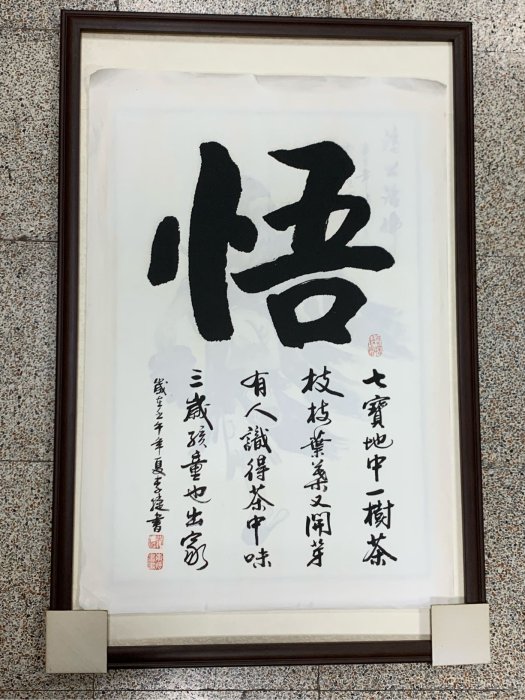 悟
七寶地中一樹茶
枝枝葉葉又開芽
有人識得茶中味
三歲孩童也出家
歲在午年夏李書